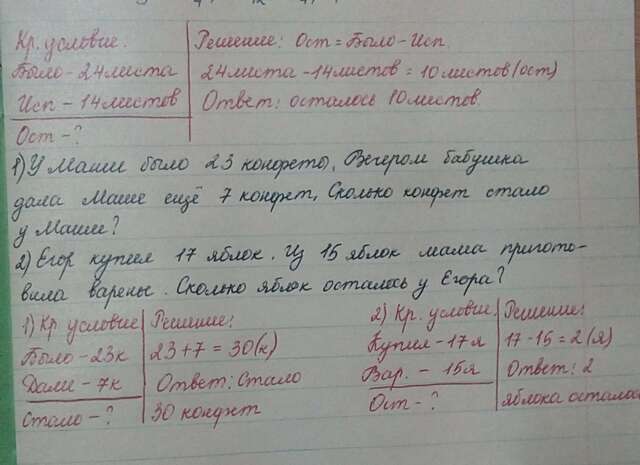 Кр. условие. Решение: Ост = Было - Исп.
Было - 24 листа 24 листа - 14 листов = 10 листов (ост)
Исп - 14 листов Ответ: осталось 10 листов.
Ост - ?
1) У Маши было 23 конфеты, Вечером бабушка
дала Маше ещё 7 конфет, Сколько конфет стало
у Маши?
2) Егор купил 17 яблок. Из 15 яблок мама пригото-
вила варенье. Сколько яблок осталось у Егора?
1) Кр условие Решение: 2) Кр. условие Решение:
Было - 23к 23 + 7 = 30 (к) Купил - 17я 17 - 15 = 2 (я)
Дали - 7к Ответ: Стало Вар. - 15я Ответ: 2
Стало - ? 30 конфет Ост - ? яблока осталось